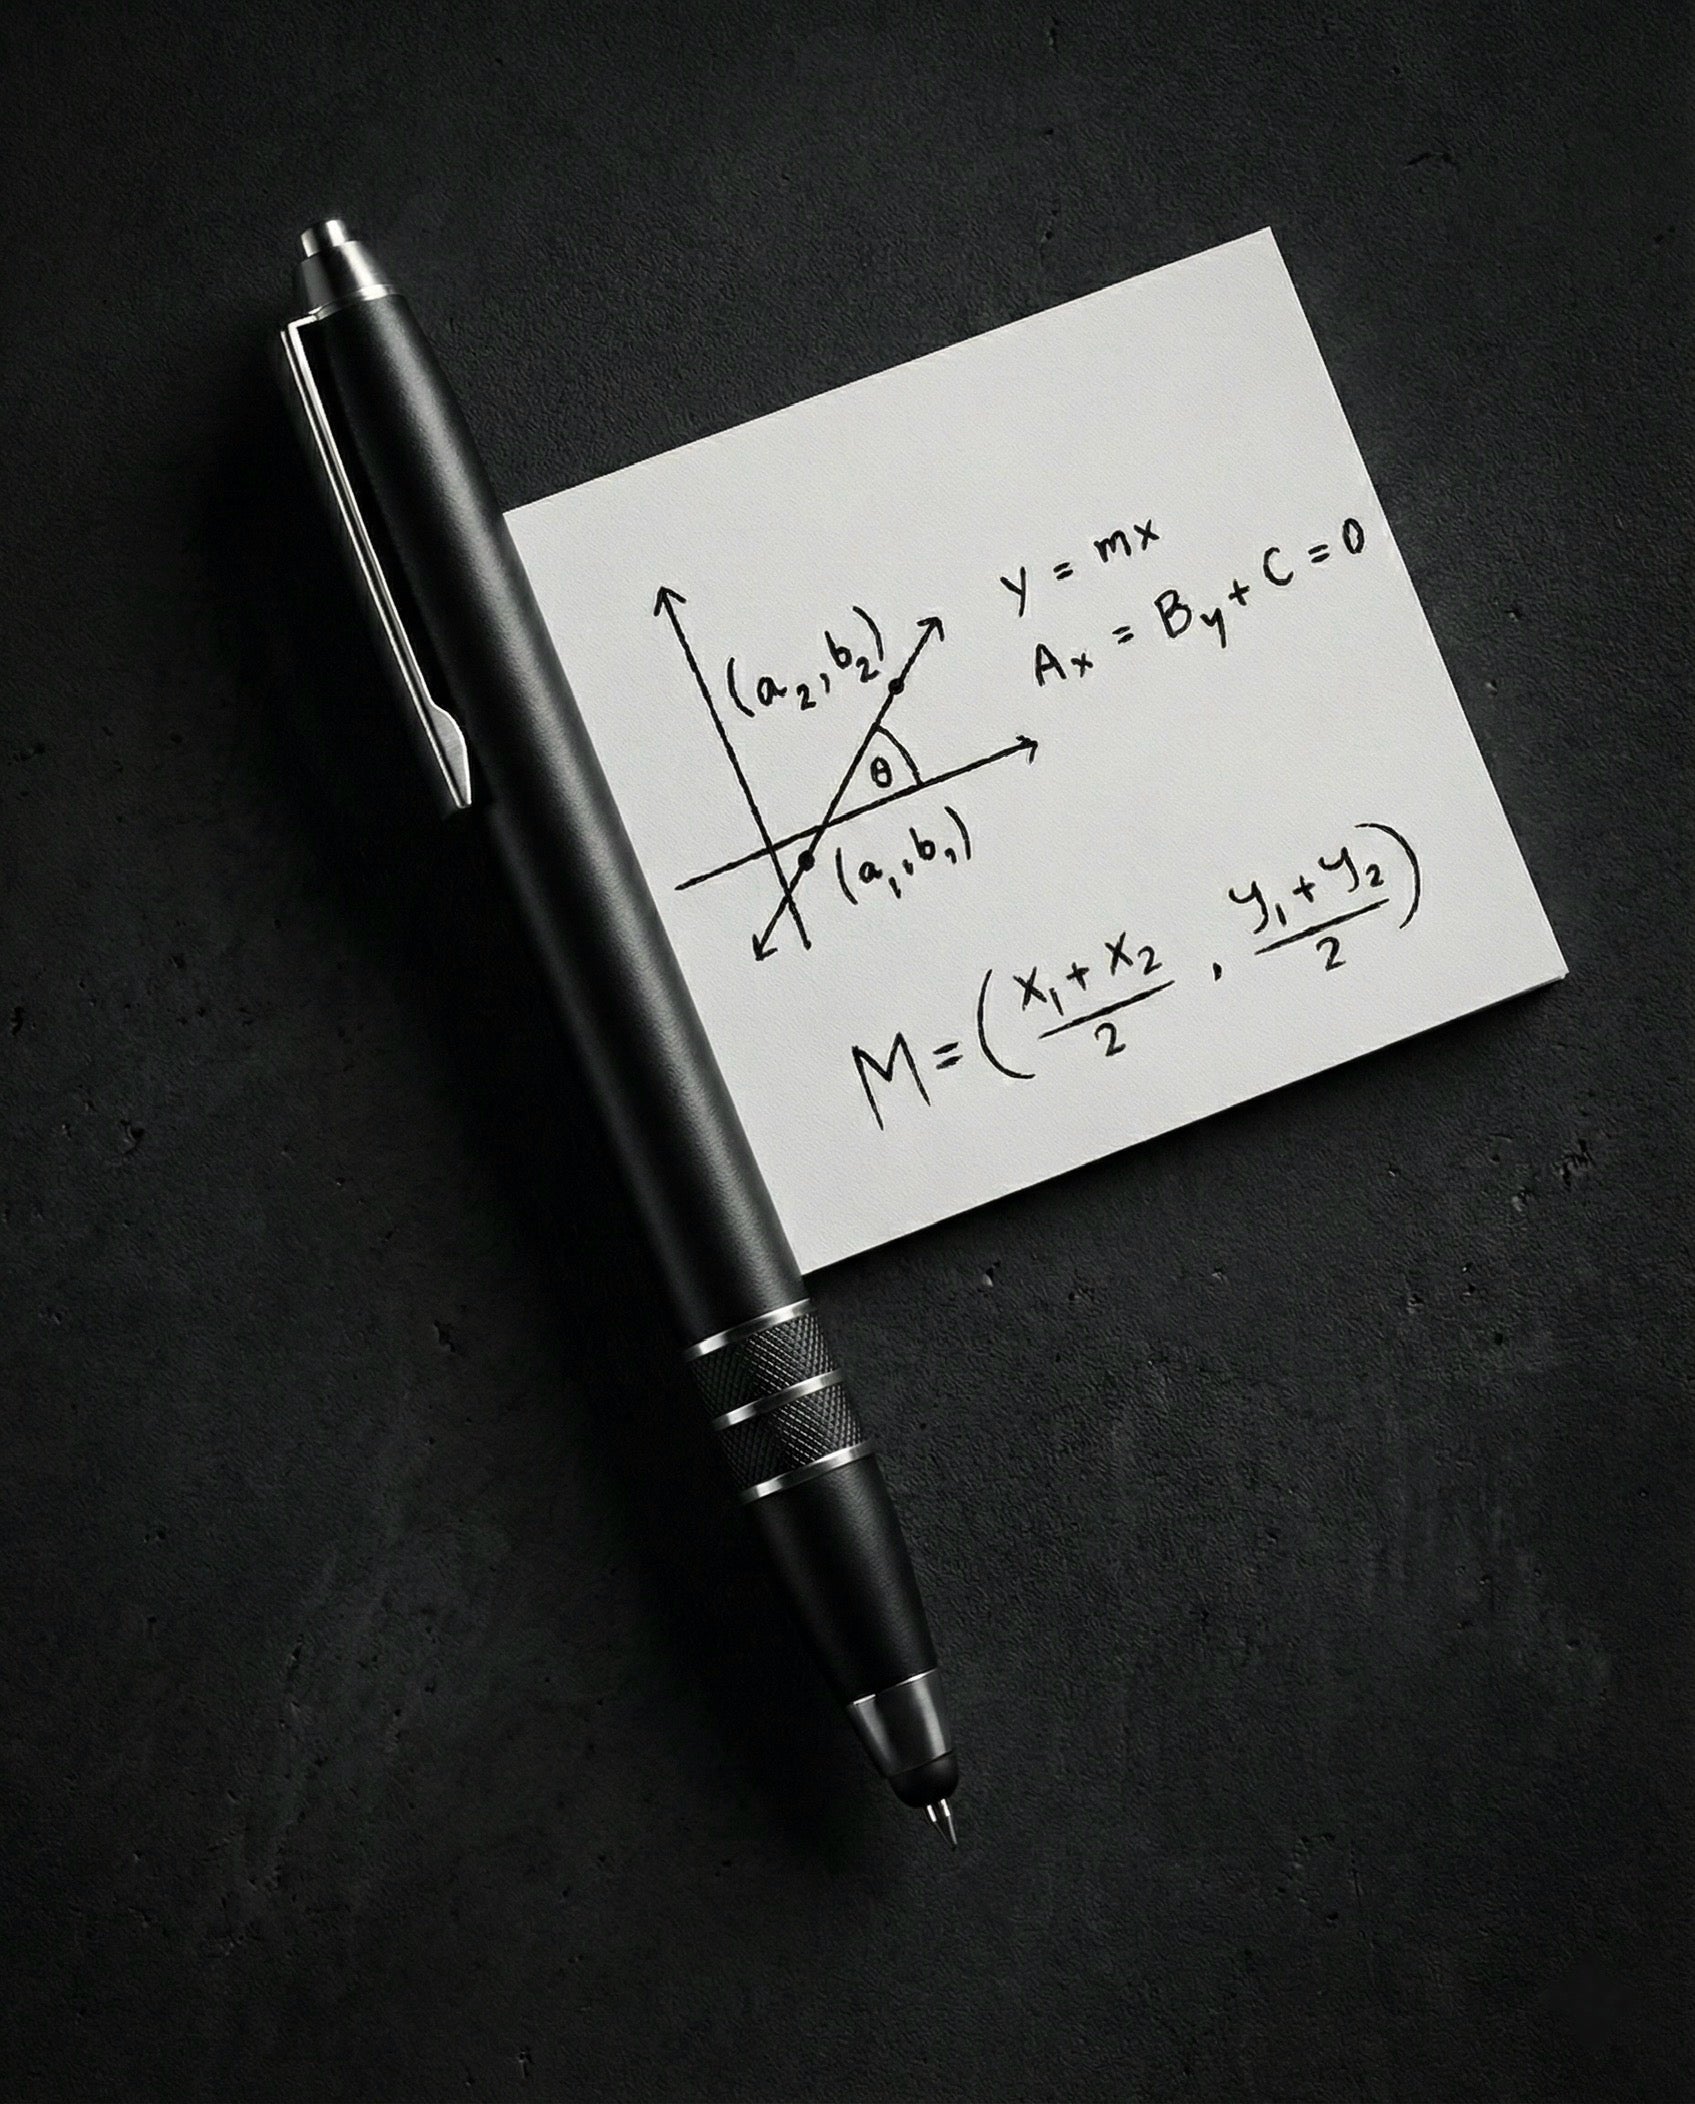 y = mx
Ax = By + C = 0
(a₂, b₂)
θ
(a₁, b₁)
M = ( x₁ + x₂ / 2 , y₁ + y₂ / 2 )